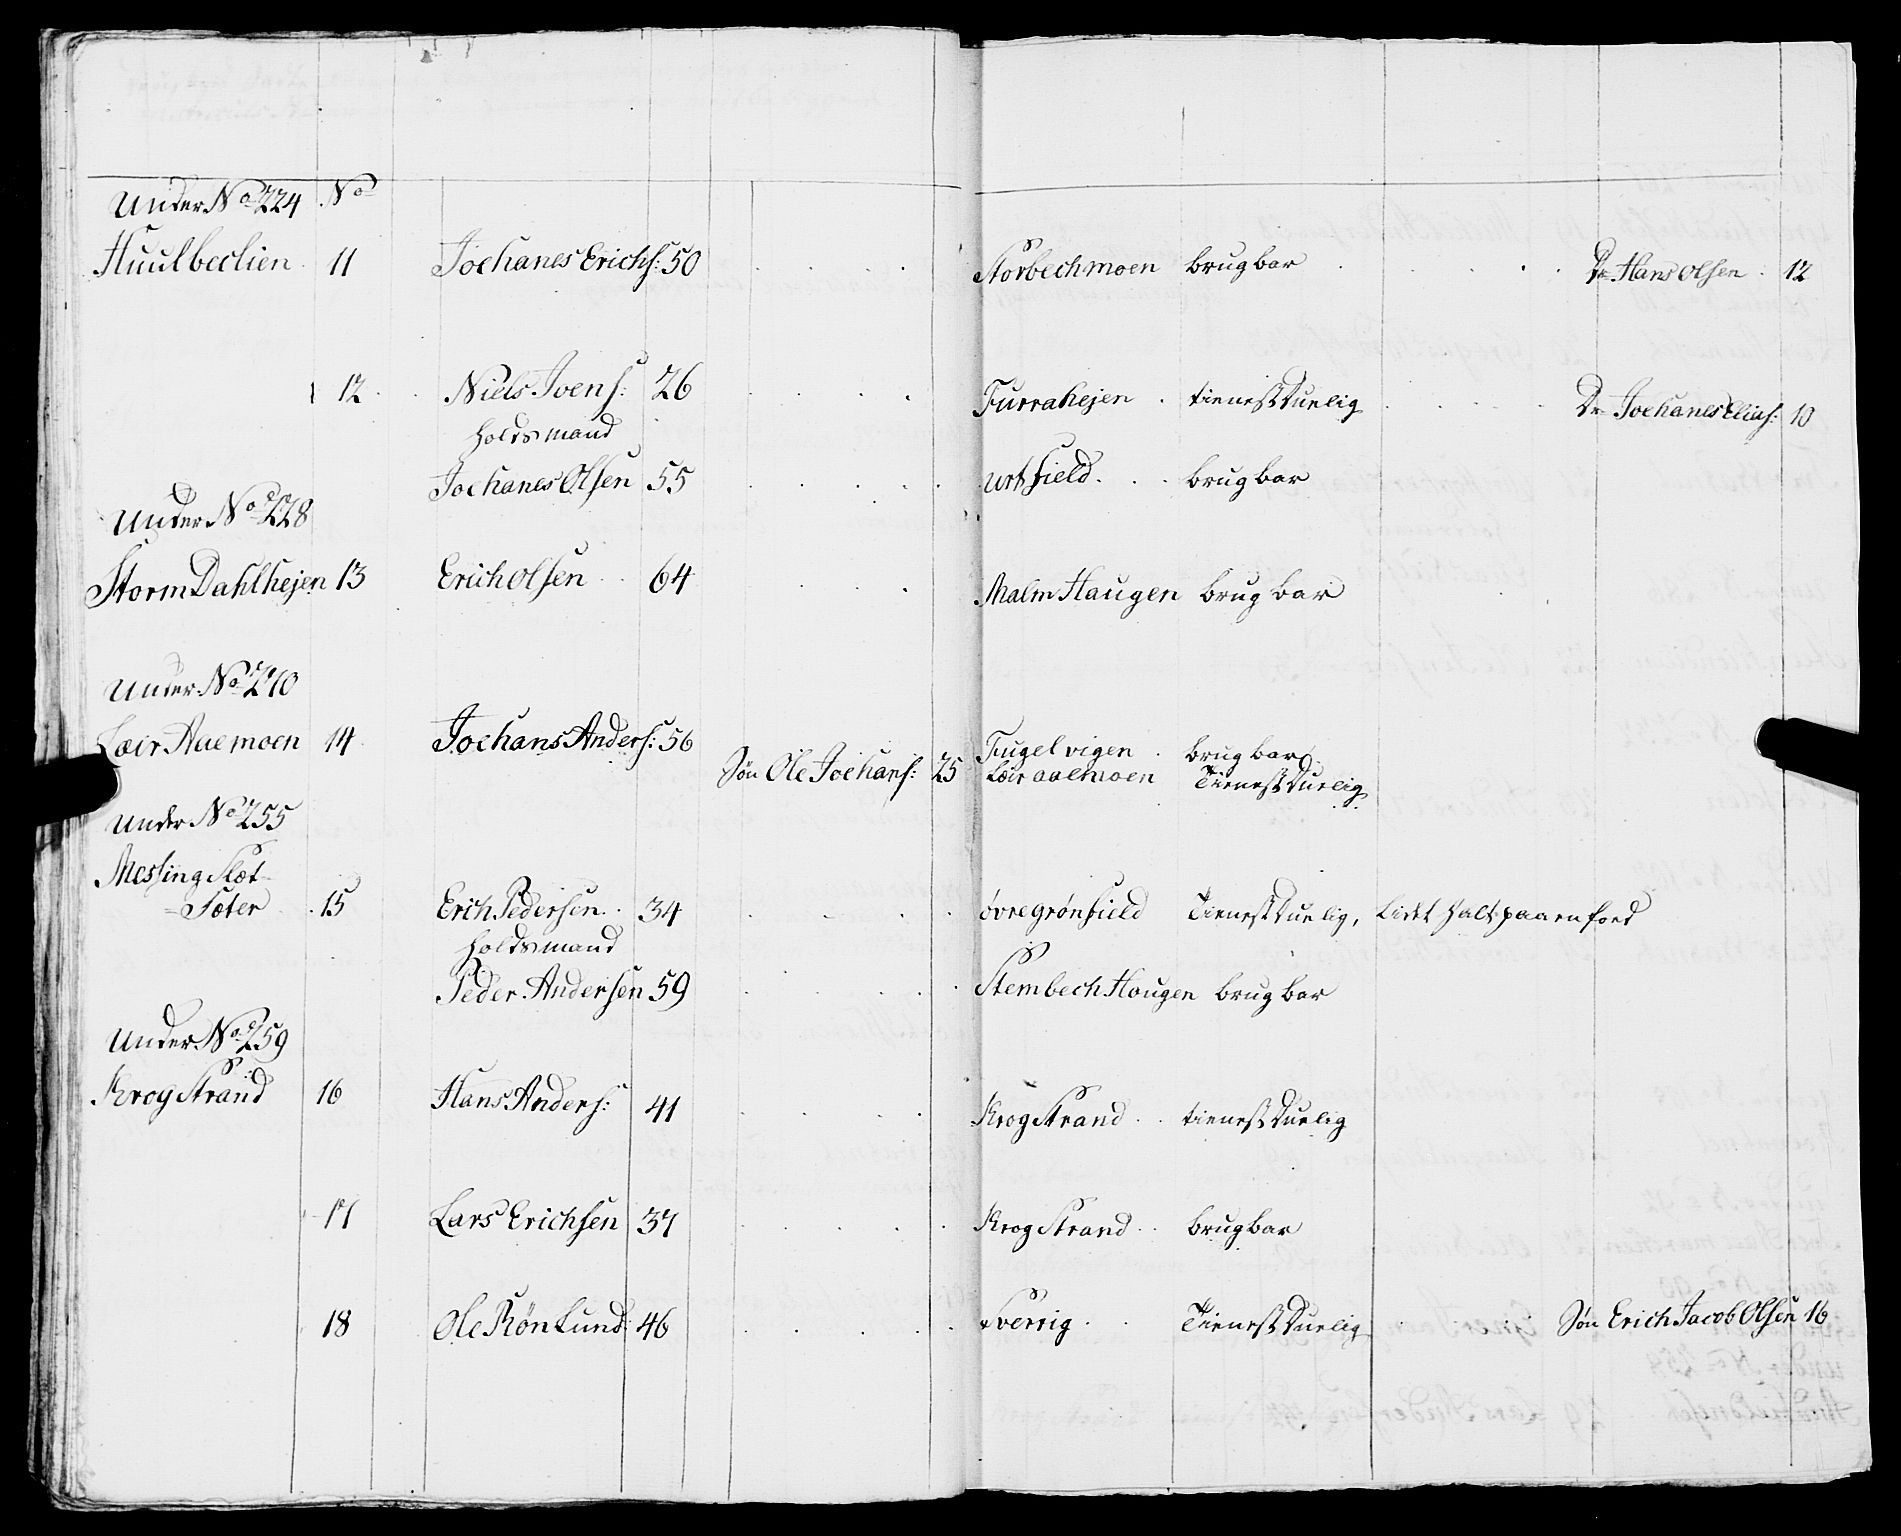 Under No 224 No
Huulbeclien 11 Joehanes Erichs: 50 Storbechmoen brugbar Dr Hans Olsen 12
12 Niels Joens: 26 Furrahejen tienestDuelig Dr Joehanes Elias: 10
holdsmand
Joehanes Olsen 55 urtfield brugbar
Under No 228
StormDahlhejen 13 Erich Olsen 64 Malm Haugen brugbar
Under No 240
Læir Aaemoen 14 Joehans Anders: 56 Fugelvigen brugbar
Søn Ole Joehans: 25 Læir aaemoen TienestDuelig
Under No 255
Messing Slæt-
=Sæter 15 Erich Pedersen 34 øvregrønfield TienestDuelig, lidet halt paa en foed
holdsmand
Peder Andersen 59 Stembech Hougen brugbar
Under No 259
Krog Strand 16 Hans Anders: 41 Krog Strand tienestDuelig
17 Lars Erichsen 37 Krog Strand brugbar
18 Ole Rönlund 46 Sverrig TienestDuelig Søn Erich Jacob Olsen 16